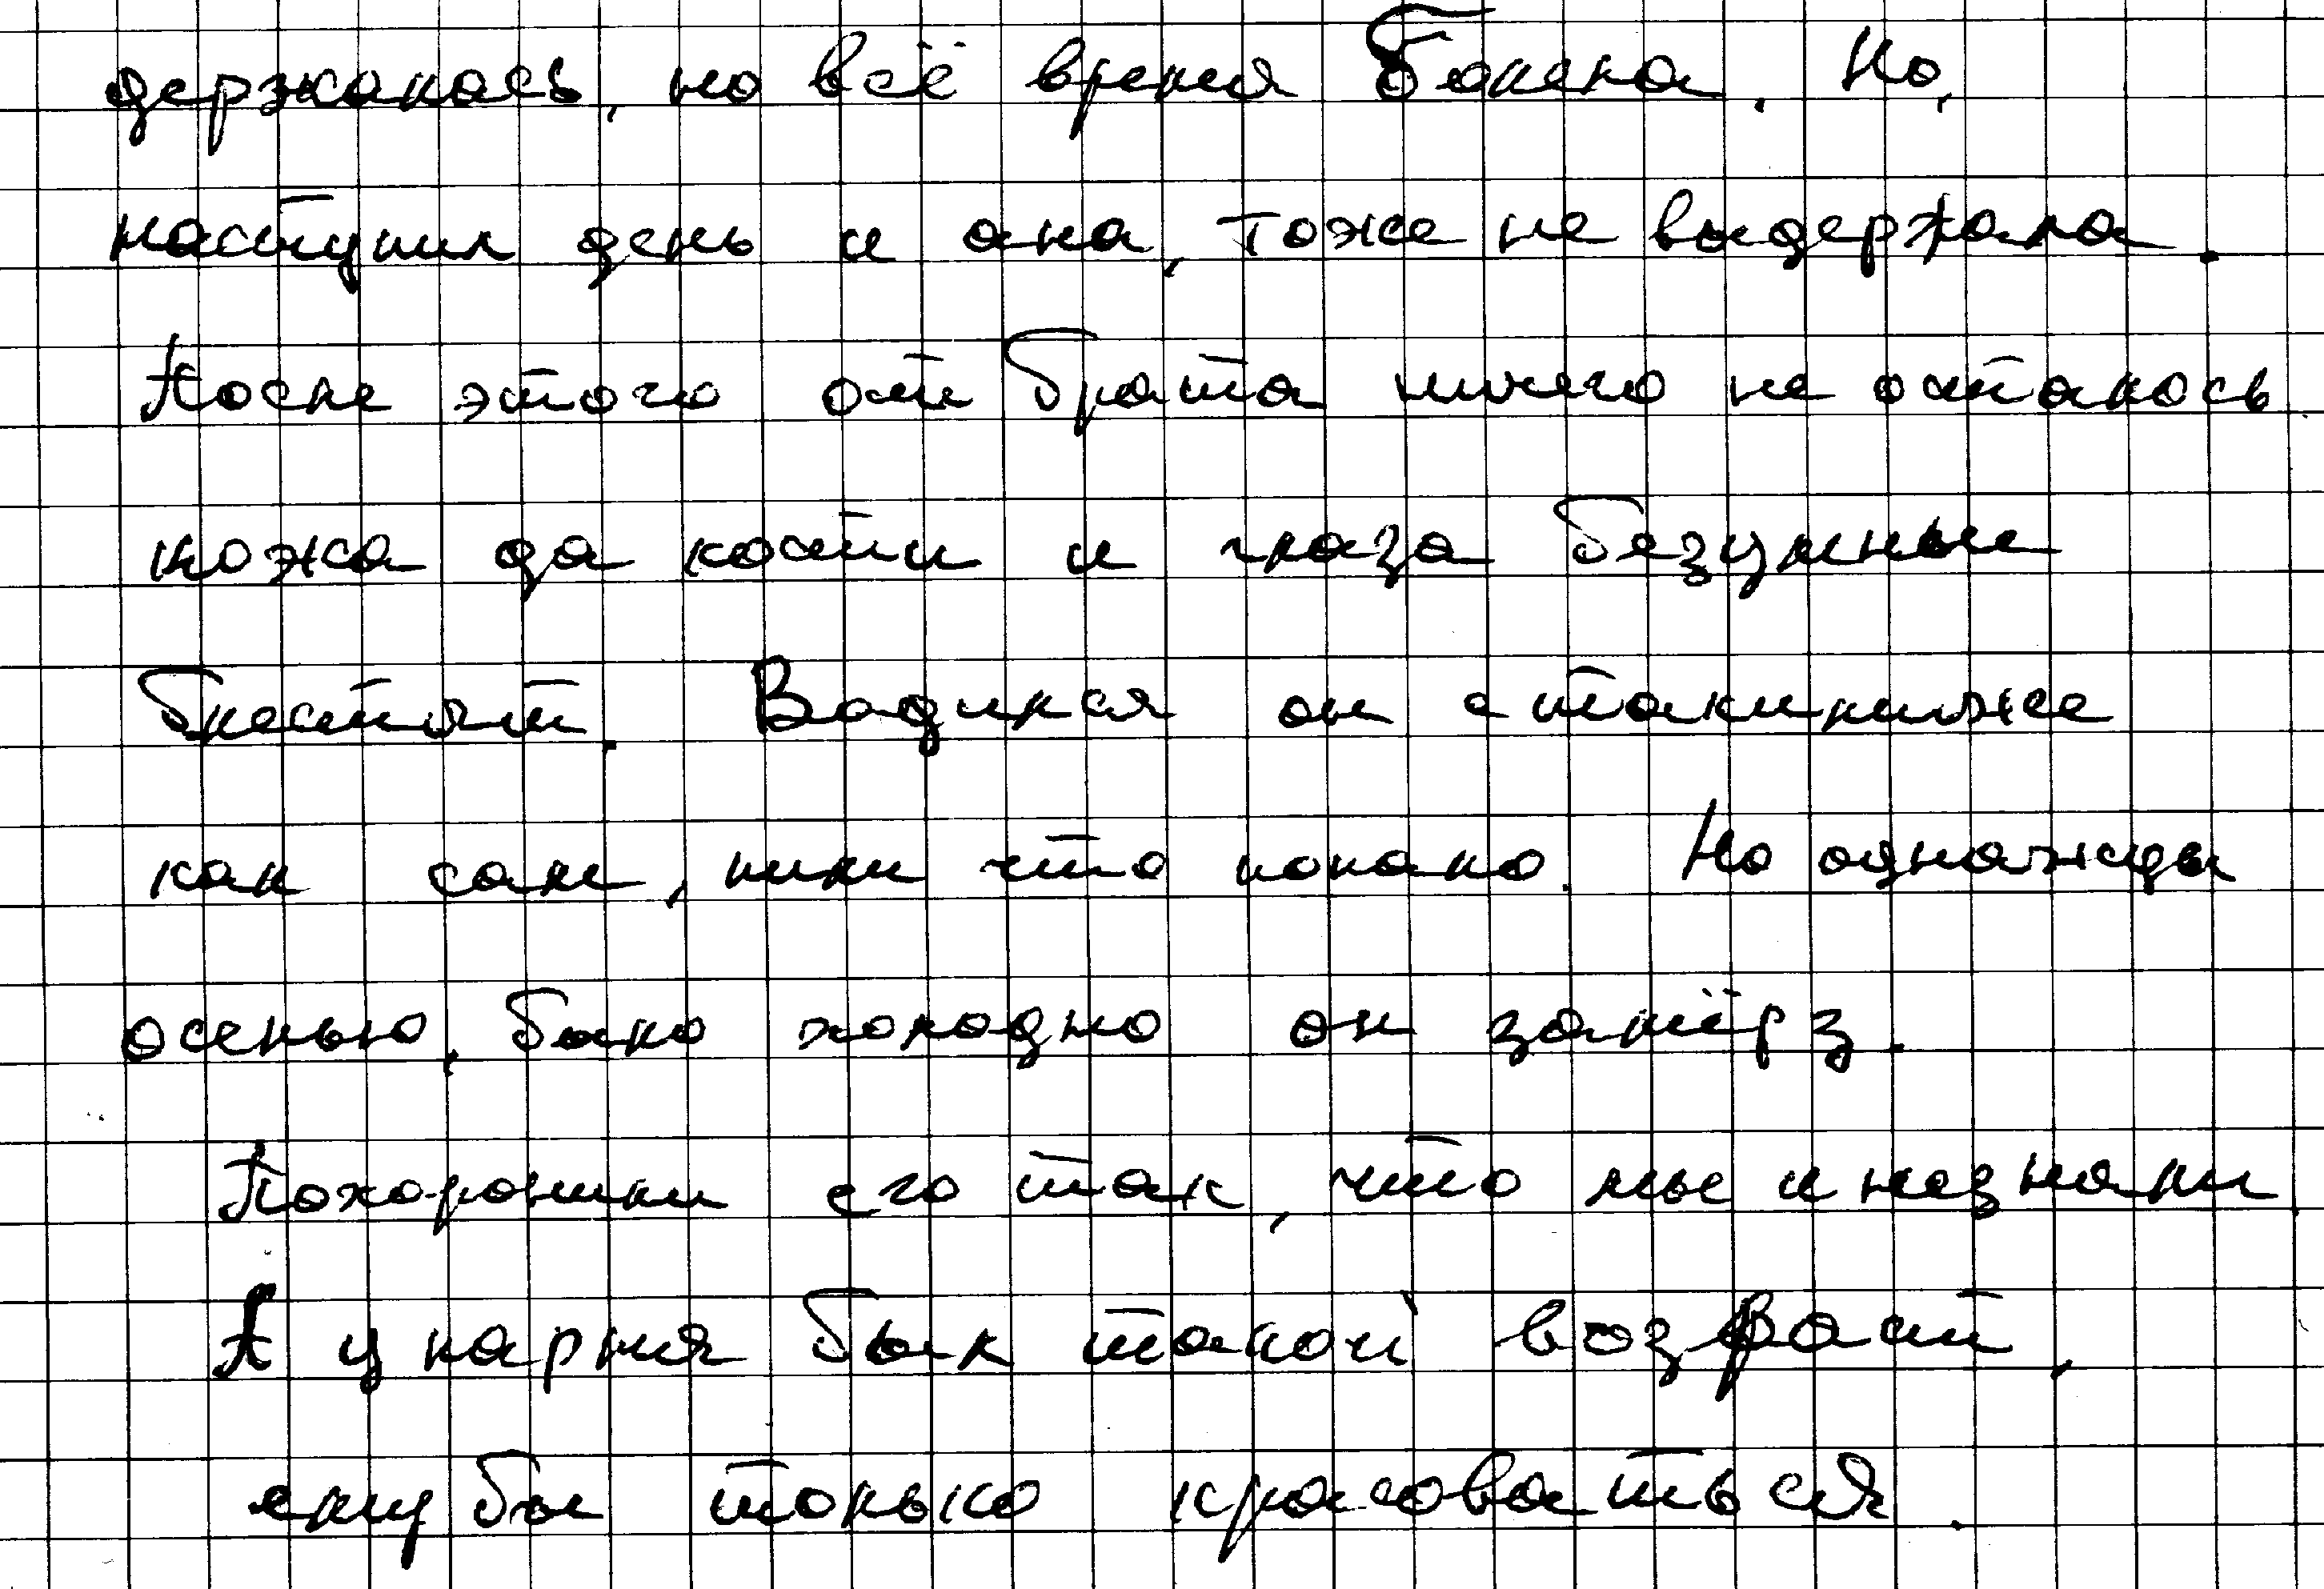 держалась, но всё время болела. Но,
наступил день и она, тоже не выдержала.
После этого от брата ничего не осталось
кожа да кости и глаза безумные
блестят. Водился он с такимиже
как сам, пили что попало. Но однажды
осенью, было холодно он замёрз.
Похоронили его так, что мы и незнали.
А у парня был такой возраст,
ему бы только красоваться.